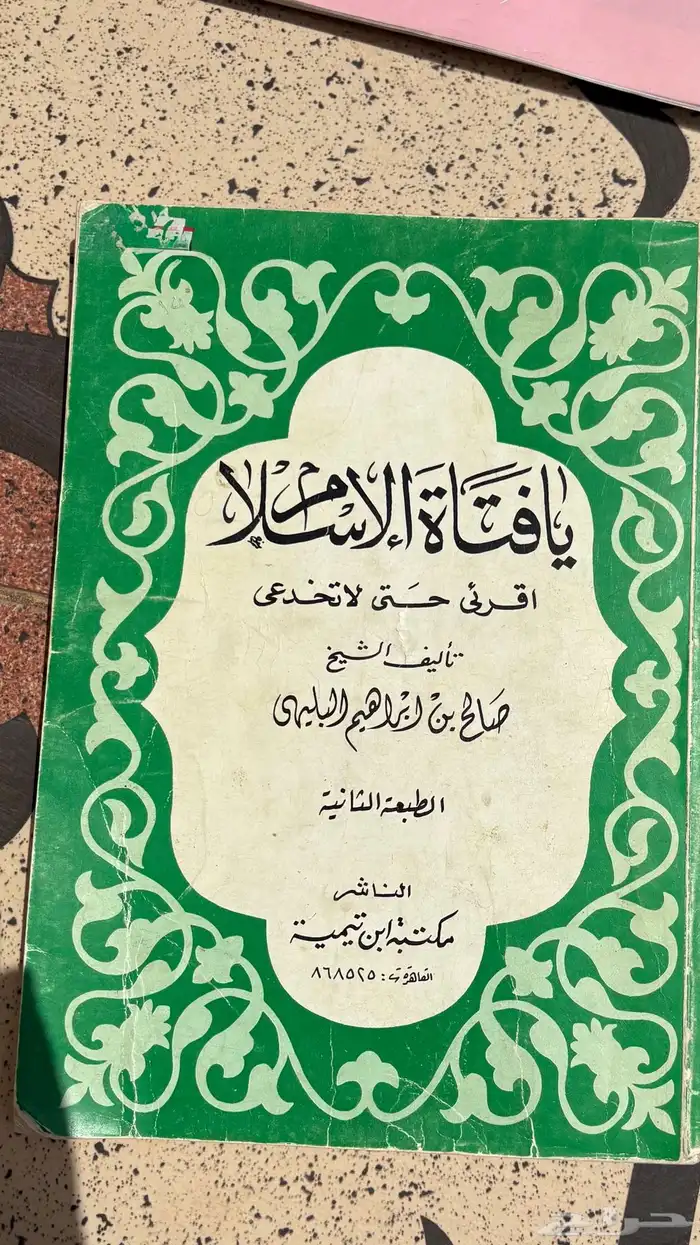 يا فتاة الإسلام
اقرئى حتى لا تخدعى
تأليف الشيخ
صالح بن ابراهيم البليهى
الطبعة الثانية
الناشر
مكتبة ابن تيمية
القاهرة ت: ٨٦٨٥٢٥
حراج